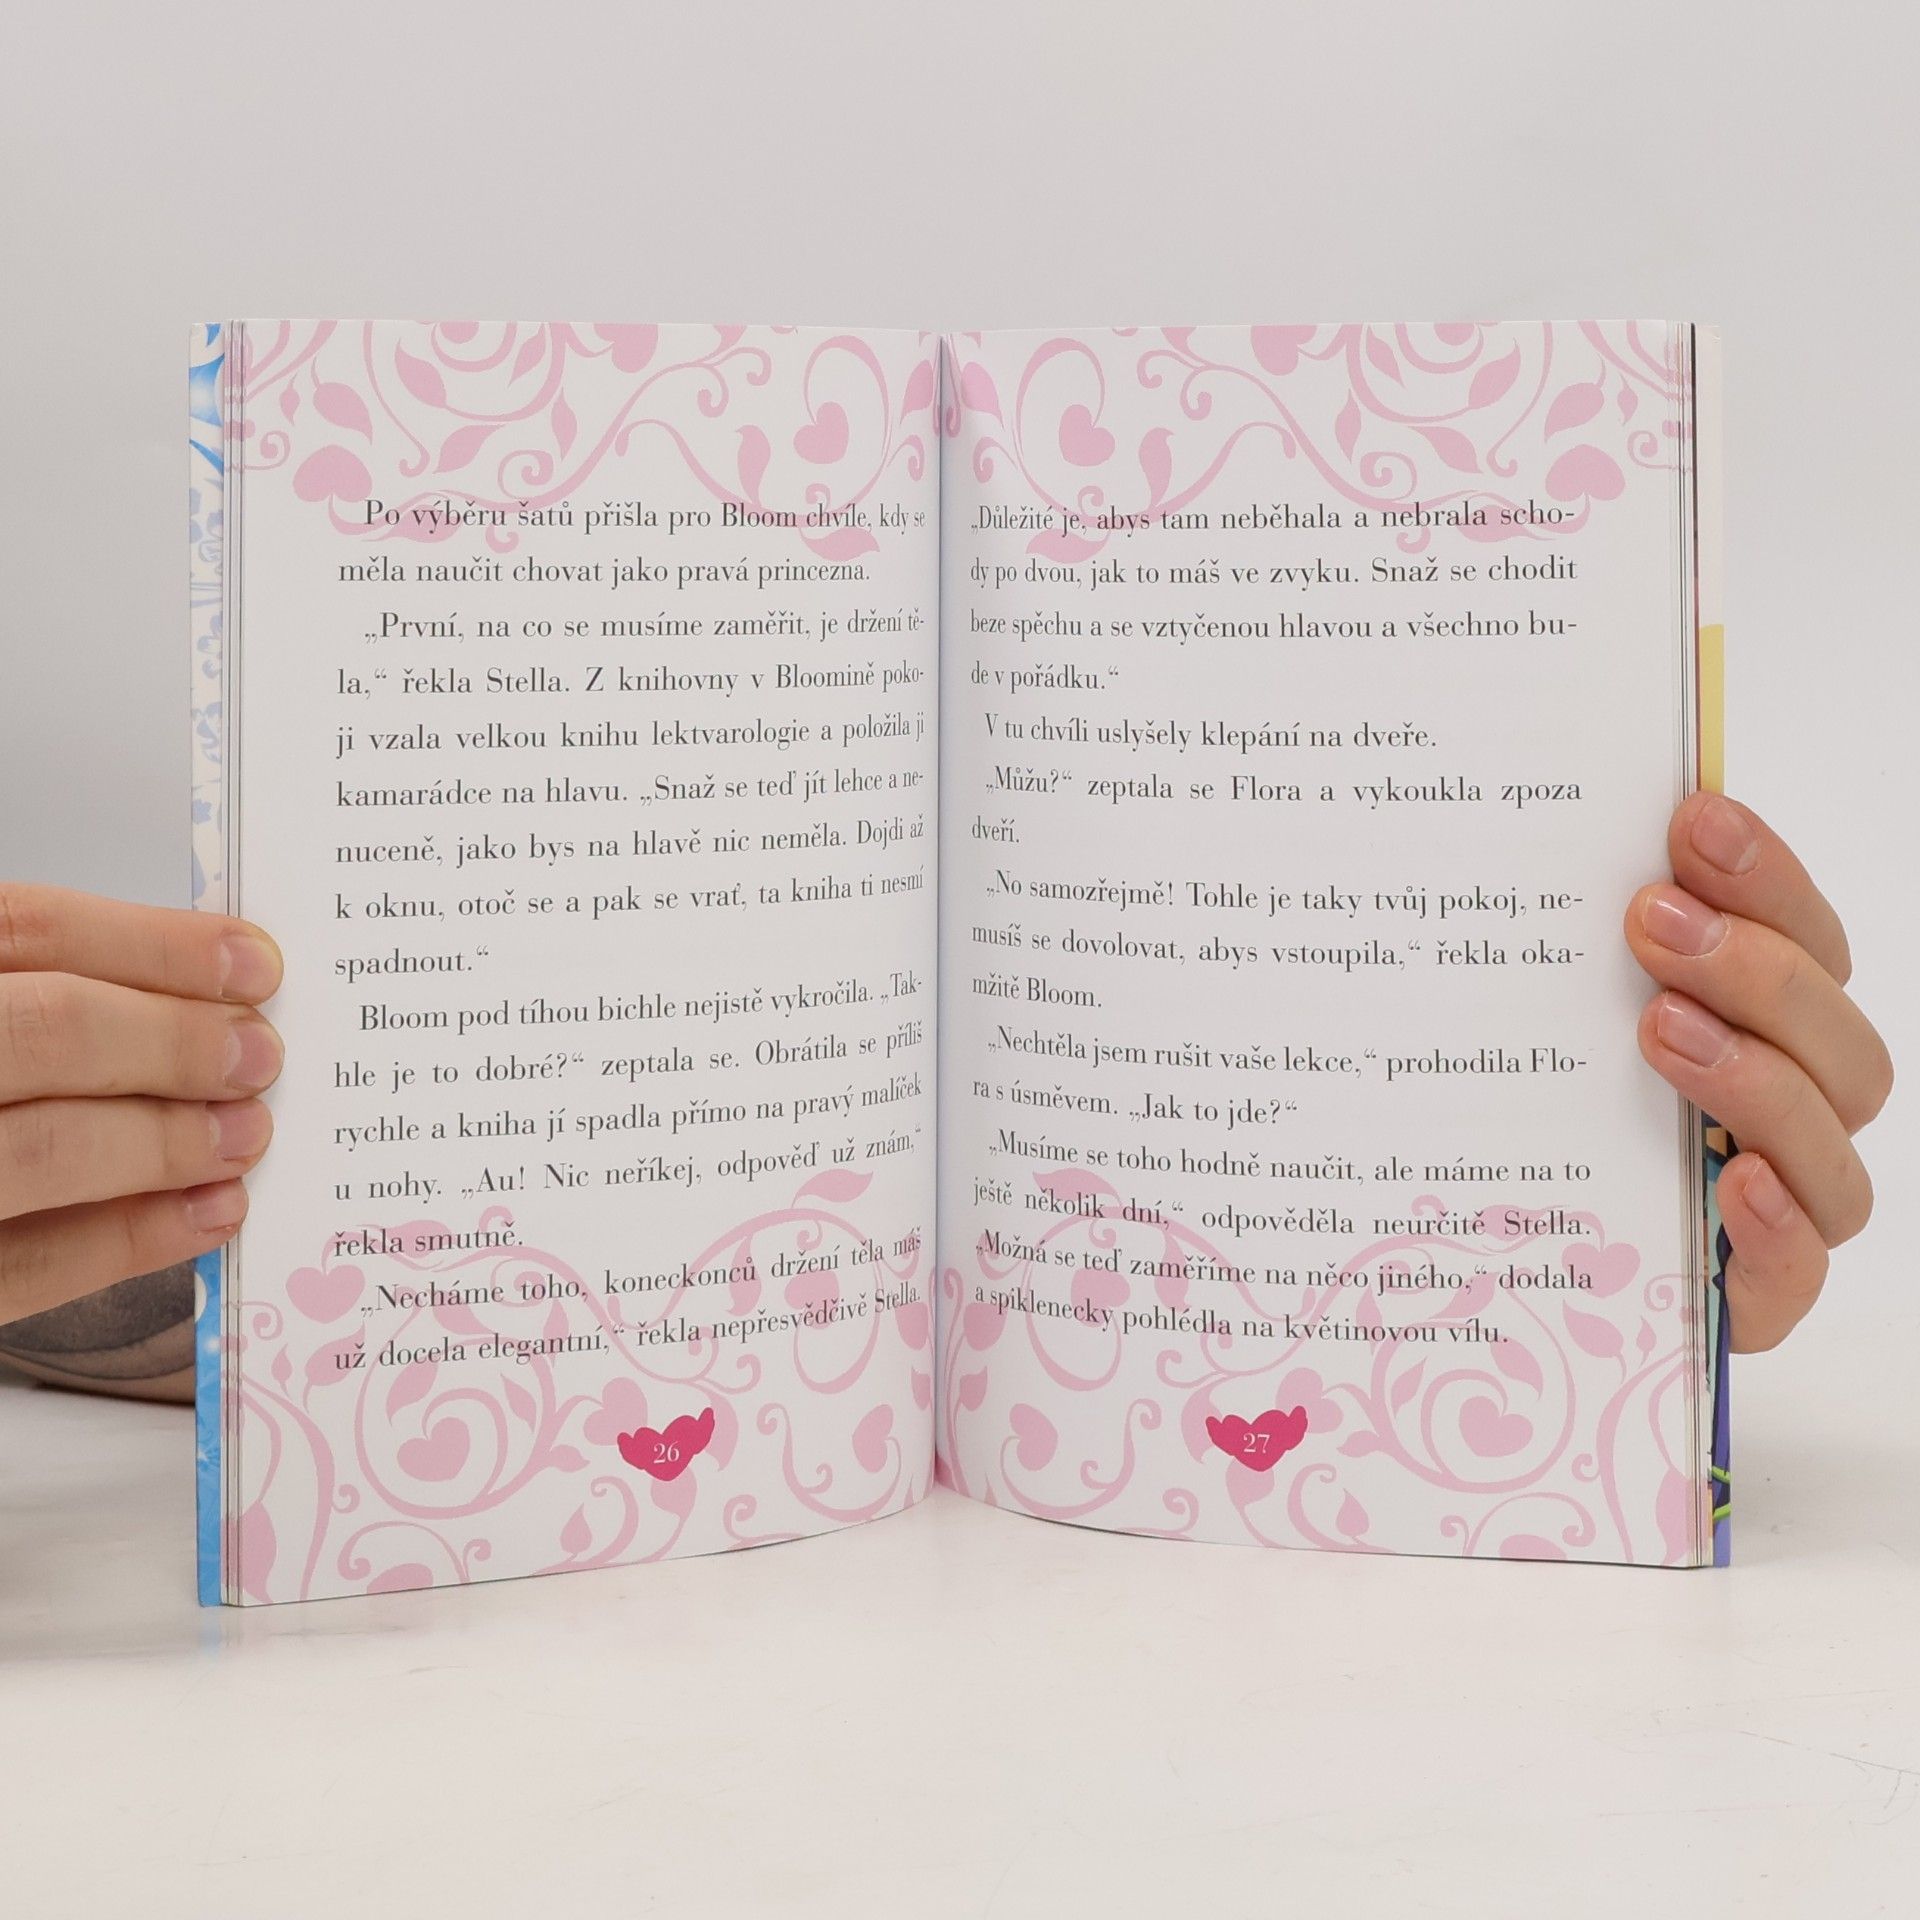 Po výběru šatů přišla pro Bloom chvíle, kdy se
měla naučit chovat jako pravá princezna.
„První, na co se musíme zaměřit, je držení tě-
la,“ řekla Stella. Z knihovny v Bloomině poko-
ji vzala velkou knihu lektvarologie a položila ji
kamarádce na hlavu. „Snaž se teď jít lehce a ne-
nuceně, jako bys na hlavě nic neměla. Dojdi až
k oknu, otoč se a pak se vrať, ta kniha ti nesmí
spadnout.“
Bloom pod tíhou bichle nejistě vykročila. „Tak-
hle je to dobré?“ zeptala se. Obrátila se příliš
rychle a kniha jí spadla přímo na pravý malíček
u nohy. „Au! Nic neříkej, odpověď už znám,“
řekla smutně.
„Necháme toho, koneckonců držení těla máš
už docela elegantní,“ řekla nepřesvědčivě Stella.
26
„Důležité je, abys tam neběhala a nebrala scho-
dy po dvou, jak to máš ve zvyku. Snaž se chodit
beze spěchu a se vztyčenou hlavou a všechno bu-
de v pořádku.“
V tu chvíli uslyšely klepání na dveře.
„Můžu?“ zeptala se Flora a vykoukla zpoza
dveří.
„No samozřejmě! Tohle je taky tvůj pokoj, ne-
musíš se dovolovat, abys vstoupila,“ řekla oka-
mžitě Bloom.
„Nechtěla jsem rušit vaše lekce,“ prohodila Flo-
ra s úsměvem. „Jak to jde?“
„Musíme se toho hodně naučit, ale máme na to
ještě několik dní,“ odpověděla neurčitě Stella.
„Možná se teď zaměříme na něco jiného,“ dodala
a spiklenecky pohlédla na květinovou vílu.
27